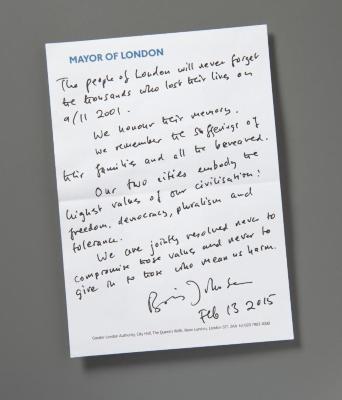 MAYOR OF LONDON
The people of London will never forget
the thousands who lost their lives on
9/11 2001.
We honour their memory.
We remember the sufferings of
their families and all the bereaved.
Our two cities embody the
highest values of our civilisation:
freedom, democracy, pluralism and
tolerance.
We are jointly resolved never to
compromise those values and never to
give in to those who mean us harm.
Boris Johnson
Feb 13 2015
Greater London Authority, City Hall, The Queen's Walk, More London, London SE1 2AA